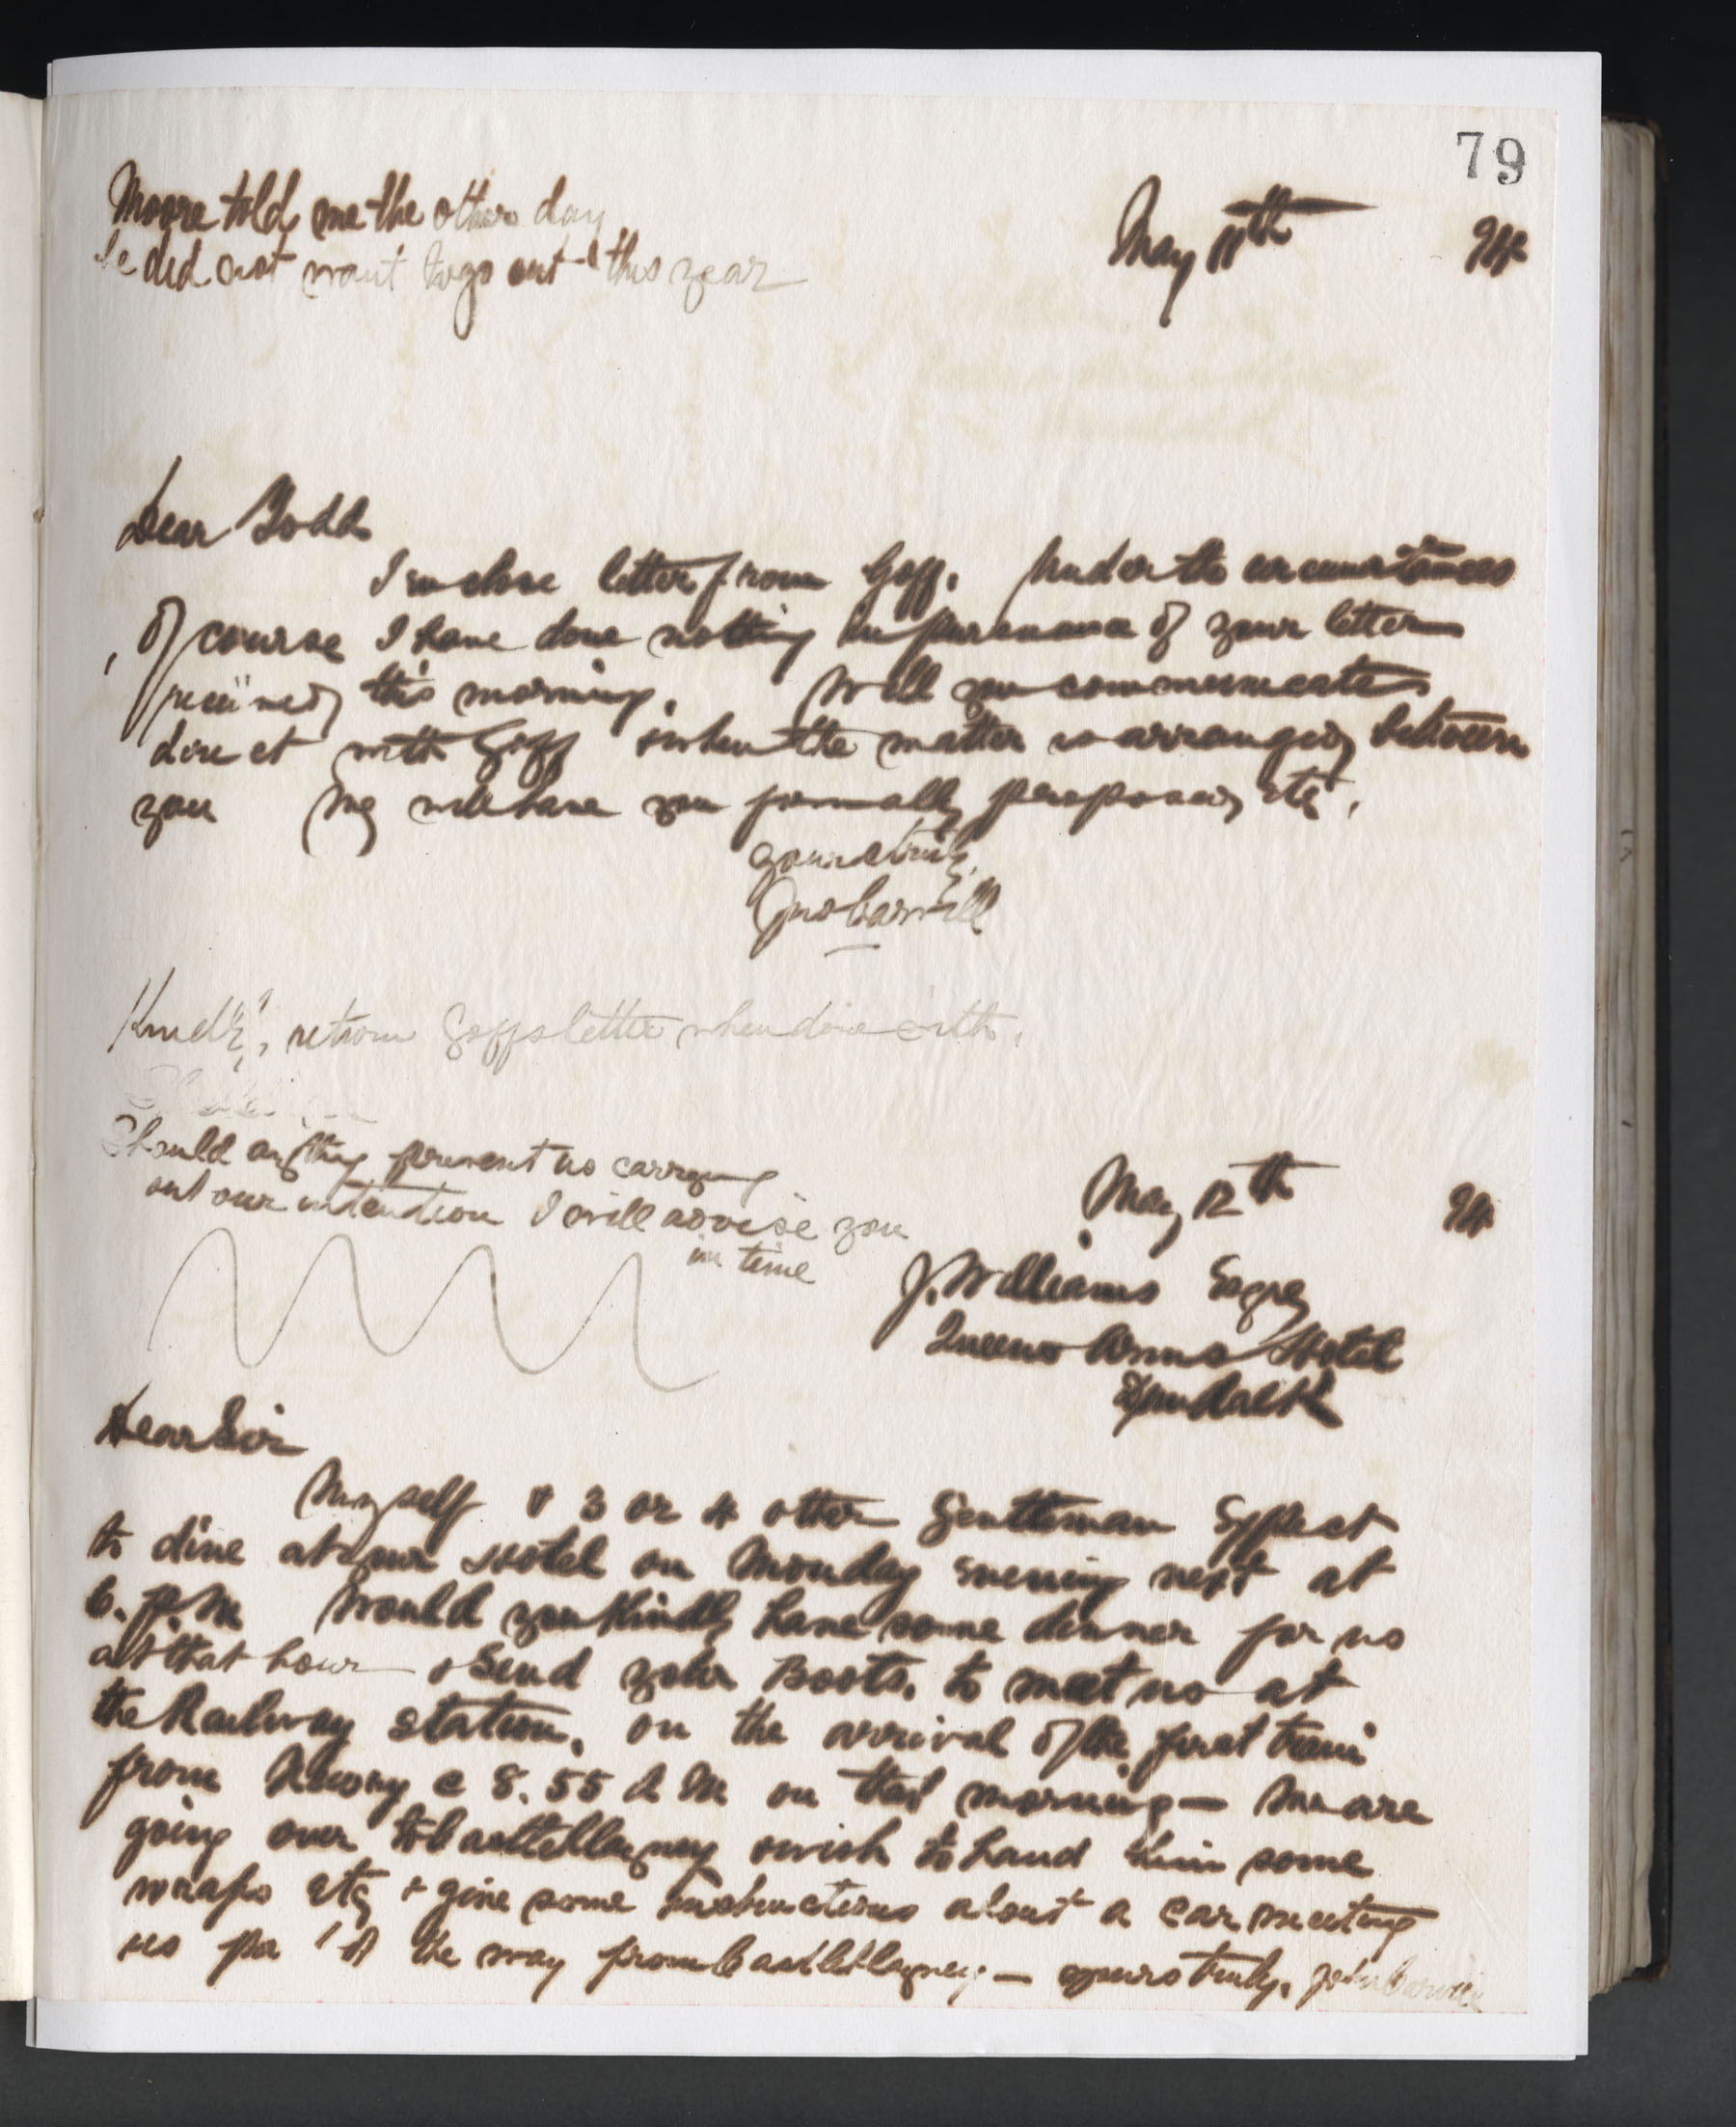 79
Moore told me the other day
he did not want to go out this year
May 11th 94
Dear Todd
I enclose letter from Goff. Under the circumstances
of course I have done nothing in pursuance of your letter
received this morning. Will you communicate
direct with Goff & when the matter is arranged between
you We will have you formally proposed etc.
yours truly,
Jno Carvill
Kindly, return Goffs letter when done with.
Should anything prevent us carrying
out our intention I will advise you
in time
May 12th 94
J. Williams Esqre
Queens Arms Hotel
Dundalk
Dear Sir
Myself & 3 or 4 other Gentleman Expect
to dine at your Hotel on Monday Evening next at
6. P.M Would you Kindly have some dinner for us
at that hour & Send your Boots. to meet us at
the Railway station, on the arrival of the first train
from Newry @ 8.55 A M on that morning — We are
going over to Castleblayney & wish to hand him some
wraps etc & give some instructions about a car meeting
us pa of the way from Castleblayney — yours truly, John Carvill